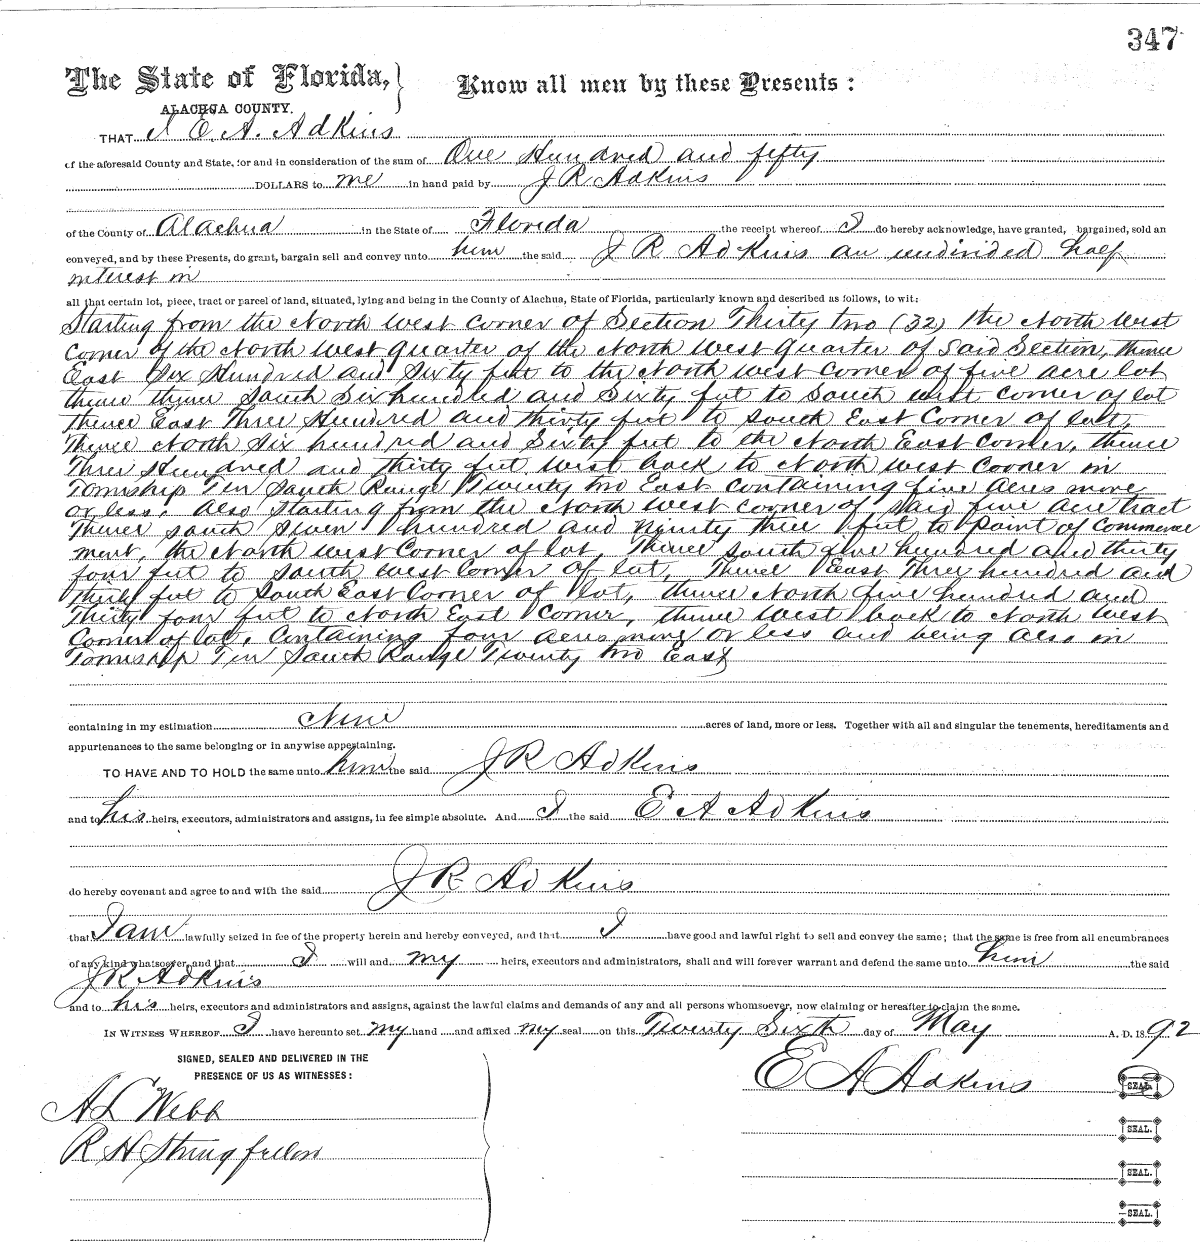 347
The State of Florida, } Know all men by these Presents:
ALACHUA COUNTY.
THAT I E. A. Adkins
of the aforesaid County and State, for and in consideration of the sum of One Hundred and fifty
DOLLARS to me in hand paid by J R Adkins
of the County of Alachua in the State of Florida the receipt whereof I do hereby acknowledge, have granted, bargained, sold an
conveyed, and by these Presents, do grant, bargain sell and convey unto him the said J R Adkins an undivided half
interest in
all that certain lot, piece, tract or parcel of land, situated, lying and being in the County of Alachua, State of Florida, particularly known and described as follows, to wit:
Starting from the North West Corner of Section Thirty two (32) the North West
Corner of the North West quarter of the North West quarter of Said Section, thence
East Six Hundred and Sixty feet to the North West Corner of five acre lot
thence thence South Six hundred and Sixty feet to South West Corner of lot
Thence East Three Hundred and thirty feet to South East Corner of lot,
Thence North Six hundred and Sixty feet to the North East Corner, thence
Three Hundred and thirty feet West back to North West Corner in
Township Ten South Range Twenty two East Containing five Acres more
or less. Also Starting from the North West Corner of Said five acre tract
Thence South Seven hundred and Ninety three feet to point of Commence
ment, the North West Corner of lot, Thence South five hundred and thirty
four feet to South West Corner of lot, Thence East Three hundred and
Thirty feet to South East Corner of lot, thence North five hundred and
Thirty four feet to North East Corner, thence West back to North West
Corner of lot, Containing four acres more or less and being also in
Township Ten South Range Twenty two East
containing in my estimation Nine acres of land, more or less. Together with all and singular the tenements, hereditaments and
appurtenances to the same belonging or in anywise appertaining.
TO HAVE AND TO HOLD the same unto him the said J R Adkins
and to his heirs, executors, administrators and assigns, in fee simple absolute. And I the said E A Adkins
do hereby covenant and agree to and with the said J R Adkins
that I am lawfully seized in fee of the property herein and hereby conveyed, and that I have good and lawful right to sell and convey the same; that the same is free from all encumbrances
of any kind whatsoever, and that I will and my heirs, executors and administrators, shall and will forever warrant and defend the same unto him the said
J R Adkins
and to his heirs, executors and administrators and assigns, against the lawful claims and demands of any and all persons whomsoever, now claiming or hereafter to claim the same.
IN WITNESS WHEREOF I have hereunto set my hand and affixed my seal on this Twenty Sixth day of May A. D. 1892
SIGNED, SEALED AND DELIVERED IN THE
PRESENCE OF US AS WITNESSES:
E A Adkins SEAL.
A L Webb
SEAL.
R H Stringfellow
SEAL.
SEAL.